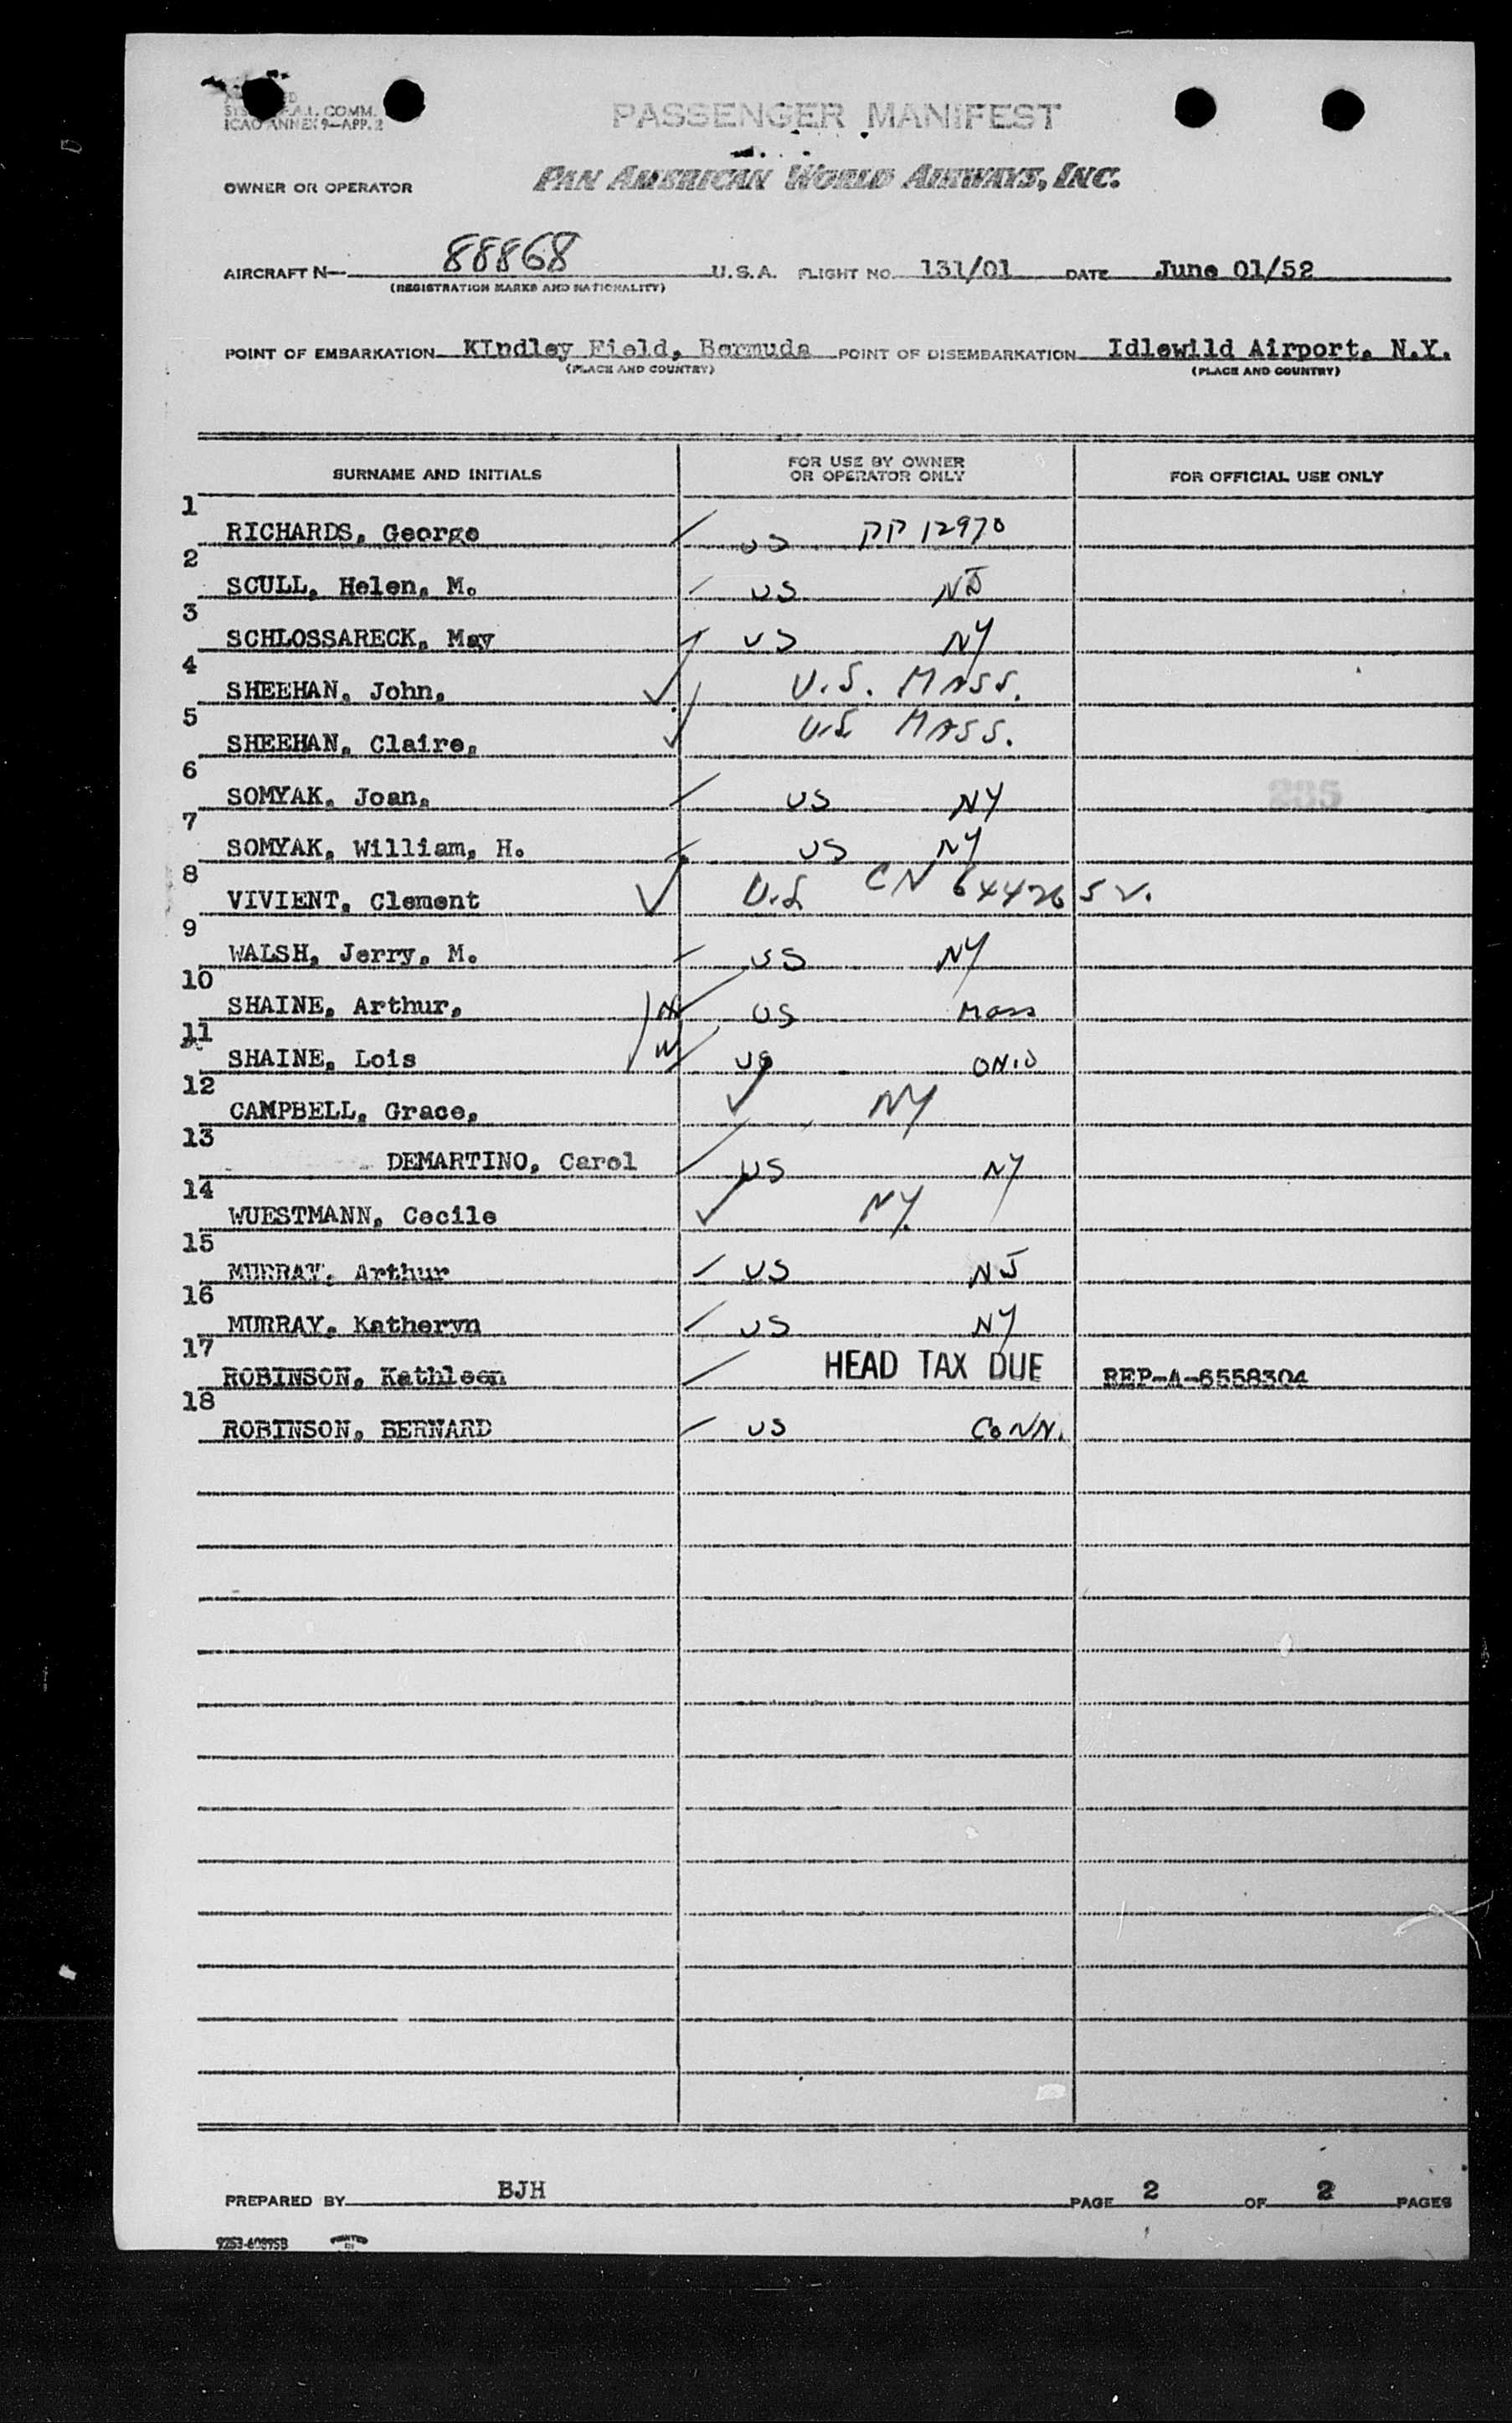 SYS F.A.L. COMM.
ICAO ANNEX 9—APP. 2
PASSENGER MANIFEST
OWNER OR OPERATOR PAN AMERICAN WORLD AIRWAYS, INC.
AIRCRAFT N— 88868 U.S.A. FLIGHT NO. 131/01 DATE June 01/52
(REGISTRATION MARKS AND NATIONALITY)
POINT OF EMBARKATION KIndley Field, Bermuda POINT OF DISEMBARKATION Idlewild Airport, N.Y.
(PLACE AND COUNTRY) (PLACE AND COUNTRY)
SURNAME AND INITIALS FOR USE BY OWNER OR OPERATOR ONLY FOR OFFICIAL USE ONLY
1 RICHARDS, George US PP 12970
2 SCULL, Helen, M. US NJ
3 SCHLOSSARECK, May US NY
4 SHEEHAN, John, U.S. MASS.
5 SHEEHAN, Claire, U.S MASS.
6 SOMYAK, Joan, US NY 235
7 SOMYAK, William, H. US NY
8 VIVIENT, Clement U.S CN 644265 V.
9 WALSH, Jerry, M. US NY
10 SHAINE, Arthur, H US Mass
11 SHAINE, Lois W US OHIO
12 CAMPBELL, Grace, NY
13 DEMARTINO, Carol US NY
14 WUESTMANN, Cecile NY.
15 MURRAY, Arthur US NJ
16 MURRAY, Katheryn US NY
17 ROBINSON, Kathleen HEAD TAX DUE REP-A-6558304
18 ROBINSON, BERNARD US CONN.
PREPARED BY BJH PAGE 2 OF 2 PAGES
9253-60895B PRINTED IN